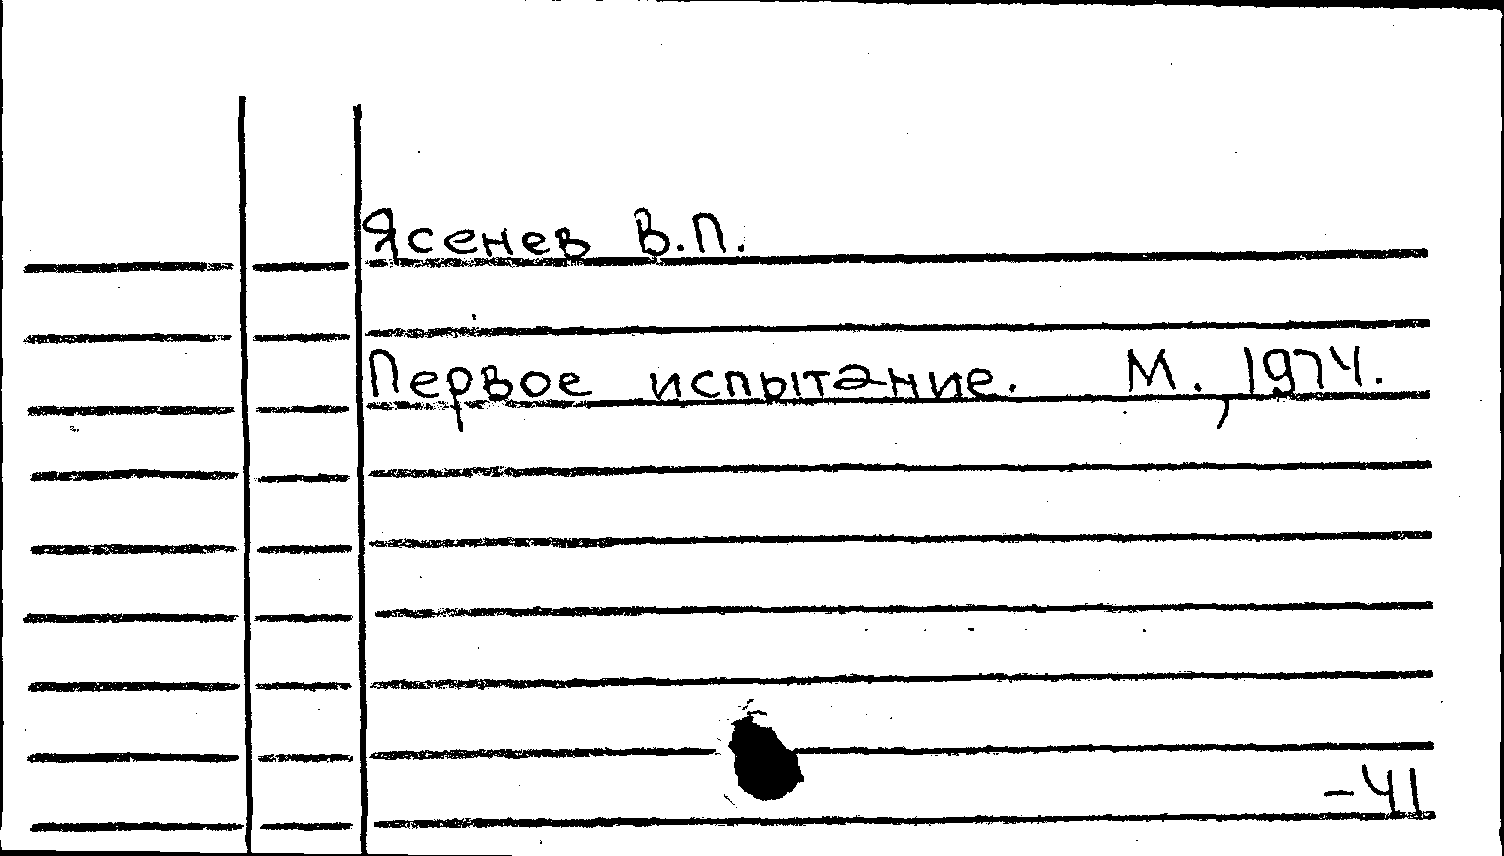 Ясенев В.П.
Первое испытание. М., 1974.
-41